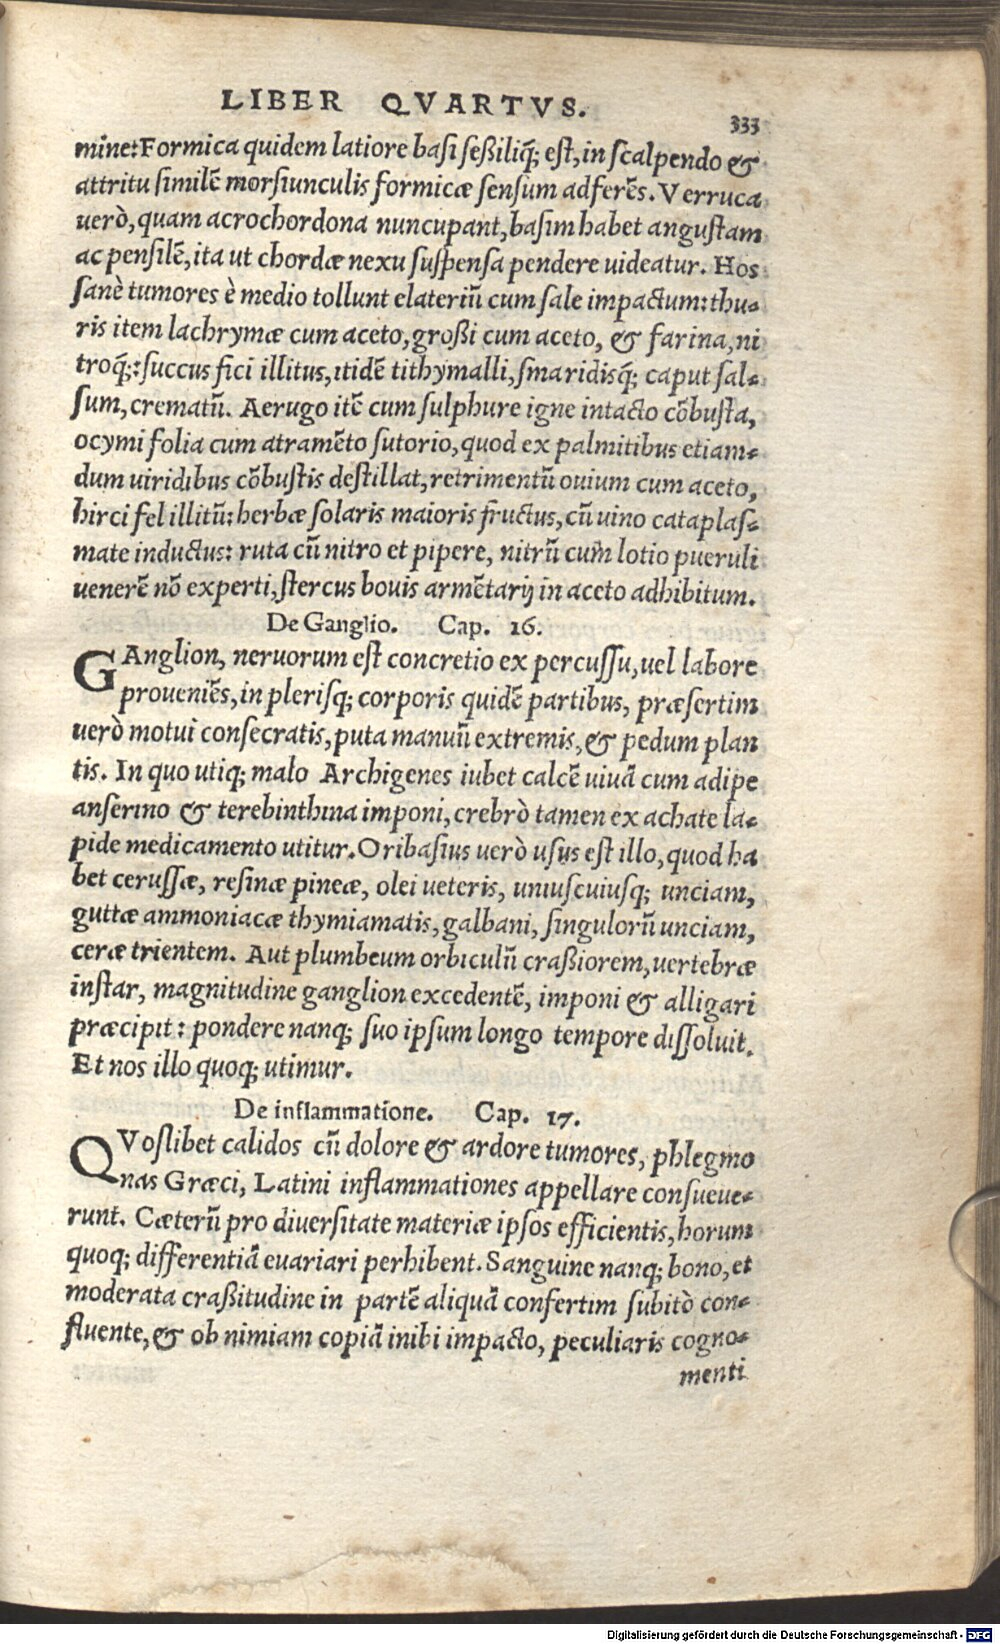 LIBER QVARTVS.
333
mine: Formica quidem latiore basi seßiliq́; est, in scalpendo &
attritu similẽ morsiunculis formicæ sensum adferẽs. Verruca
uerò, quam acrochordona nuncupant, basim habet angustam
ac pensilẽ, ita ut chordæ nexu suspensa pendere uideatur. Hos
sanè tumores è medio tollunt elateriũ cum sale impactum: thu-
ris item lachrymæ cum aceto, großi cum aceto, & farina, ni
troq́;: succus fici illitus, itidẽ tithymalli, smaridisq́; caput sal-
sum, crematũ. Aerugo itẽ cum sulphure igne intacto cõbusta,
ocymi folia cum atramẽto sutorio, quod ex palmitibus etiam-
dum uiridibus cõbustis destillat, retrimentũ ouium cum aceto,
hirci fel illitũ: herbæ solaris maioris fructus, cũ uino cataplas-
mate inductus: ruta cũ nitro et pipere, nitrũ cum lotio pueruli
uenerẽ nõ experti, stercus bouis armẽtarij in aceto adhibitum.
De Ganglio. Cap. 16.
GAnglion, neruorum est concretio ex percussu, uel labore
proueniẽs, in plerisq; corporis quidẽ partibus, præsertim
uerò motui consecratis, puta manuũ extremis, & pedum plan
tis. In quo utiq; malo Archigenes iubet calcẽ uiuã cum adipe
anserino & terebinthina imponi, crebrò tamen ex achate la-
pide medicamento utitur. Oribasius uerò usus est illo, quod ha
bet cerussæ, resinæ pineæ, olei ueteris, uniuscuiusq; unciam,
guttæ ammoniacæ thymiamatis, galbani, singulorũ unciam,
ceræ trientem. Aut plumbeum orbiculũ craßiorem, uertebræ
instar, magnitudine ganglion excedentẽ, imponi & alligari
præcipit: pondere nanq; suo ipsum longo tempore dissoluit.
Et nos illo quoq; utimur.
De inflammatione. Cap. 17.
QVoslibet calidos cũ dolore & ardore tumores, phlegmo
nas Græci, Latini inflammationes appellare consueue-
runt. Cæterũ pro diuersitate materiæ ipsos efficientis, horum
quoq; differentiã euariari perhibent. Sanguine nanq; bono, et
moderata craßitudine in partẽ aliquã confertim subitò con-
fluente, & ob nimiam copiã inibi impacto, peculiaris cogno-
menti
Digitalisierung gefördert durch die Deutsche Forschungsgemeinschaft - DFG